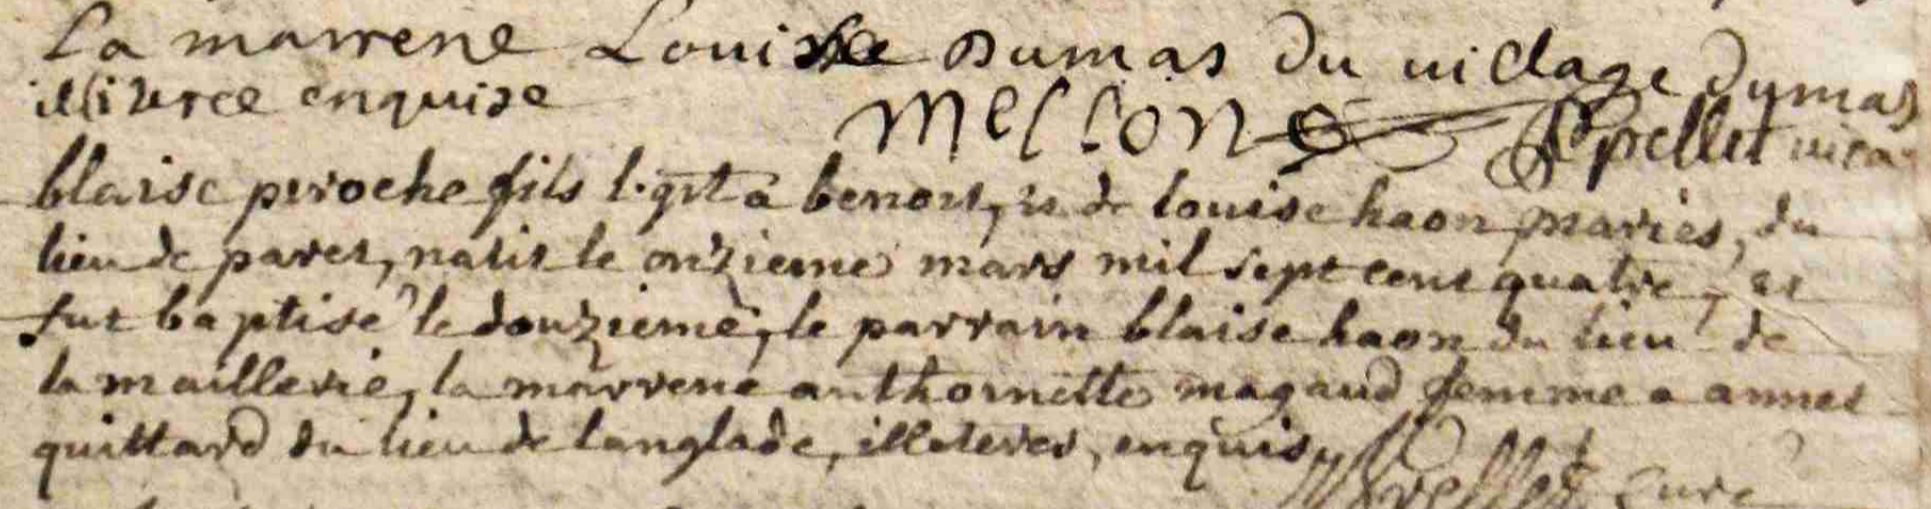 La marrene Louise Dumas du village Dumas
illiteree enquise
Mellon Pellet vica
blaise peroche fils l.gtt a benoit, et de louise haon mariés, du
lieu de paret, natif le onzieme mars mil sept cent quatre, et
fut baptisé le douzieme, le parrain blaise haon du lieu de
la maillerie, la marrene anthoinette magaud femme a annet
quittard du lieu de langlade, illeteres, enquis
Pellet curé